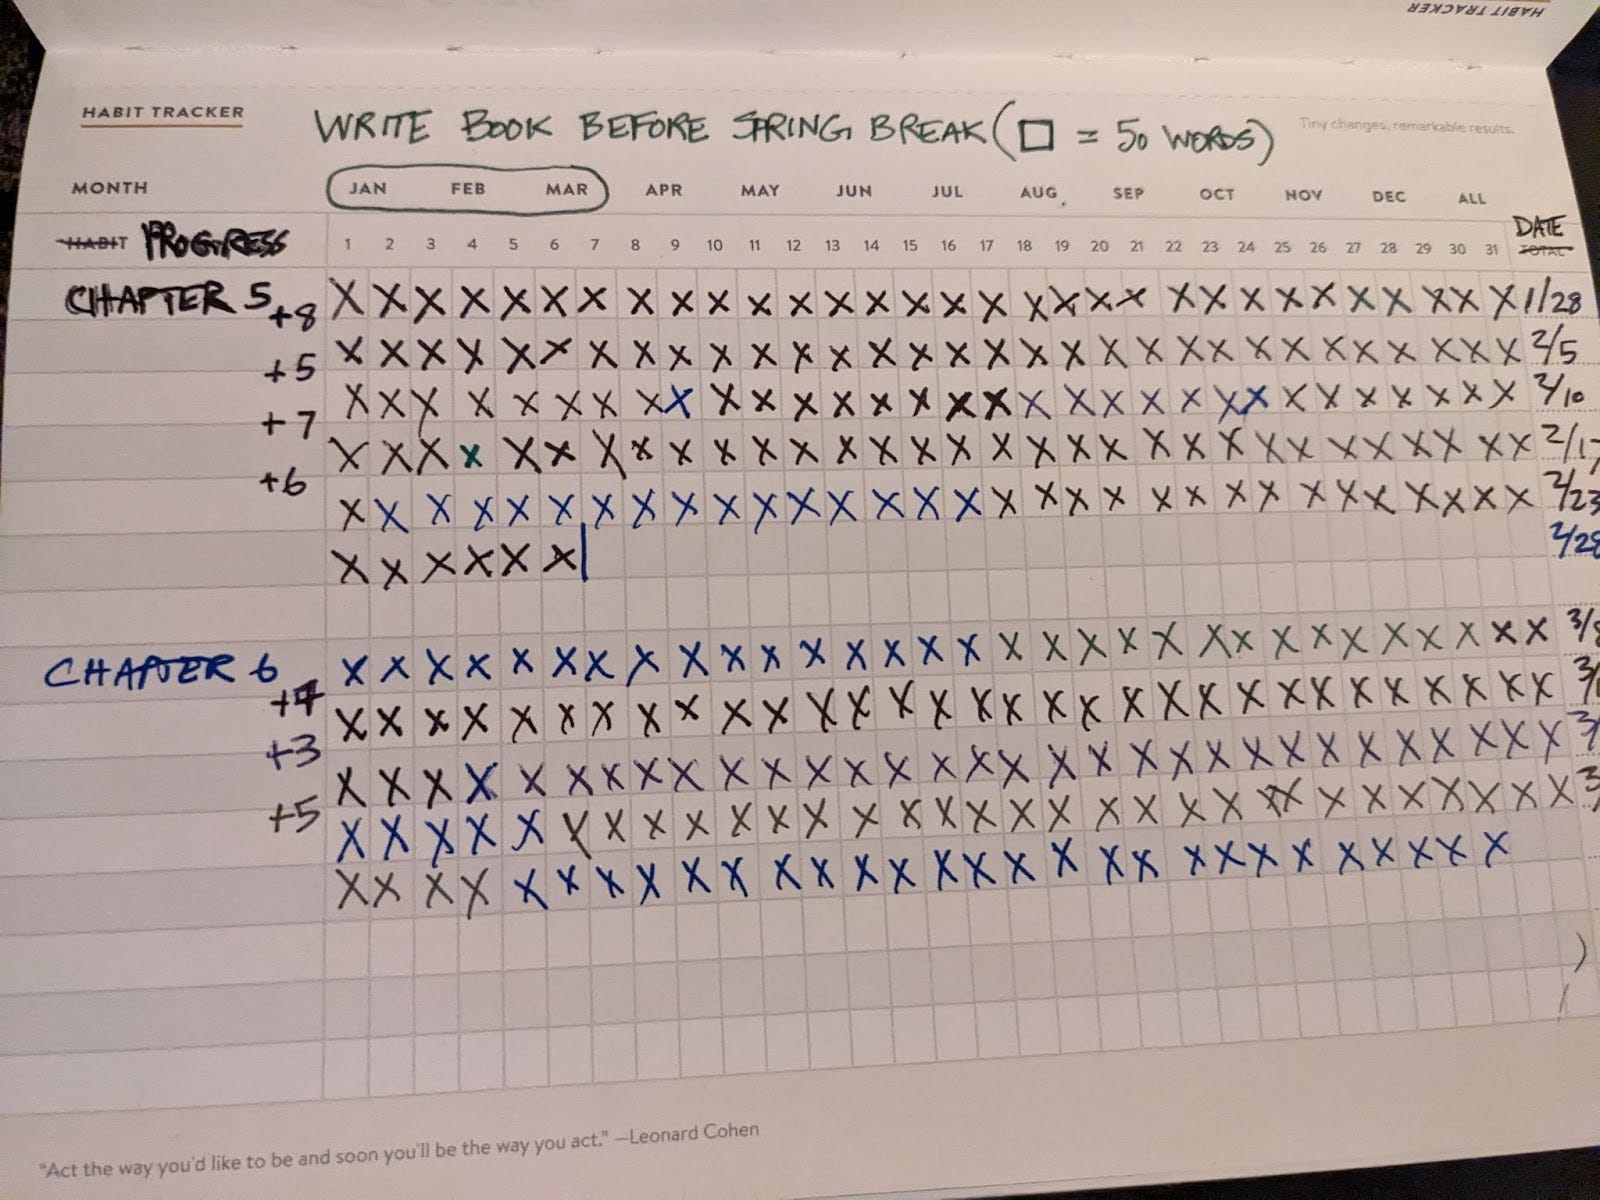 HABIT TRACKER
HABIT TRACKER
WRITE BOOK BEFORE SPRING BREAK (□ = 50 WORDS)
Tiny changes, remarkable results.
MONTH JAN FEB MAR APR MAY JUN JUL AUG SEP OCT NOV DEC ALL
HABIT PROGRESS 1 2 3 4 5 6 7 8 9 10 11 12 13 14 15 16 17 18 19 20 21 22 23 24 25 26 27 28 29 30 31 DATE TOTAL
CHAPTER 5 1/28
+8
2/5
+5
2/10
+7
2/17
+6
2/23
2/28
CHAPTER 6 3/8
+7
+3
+5
"Act the way you'd like to be and soon you'll be the way you act." —Leonard Cohen